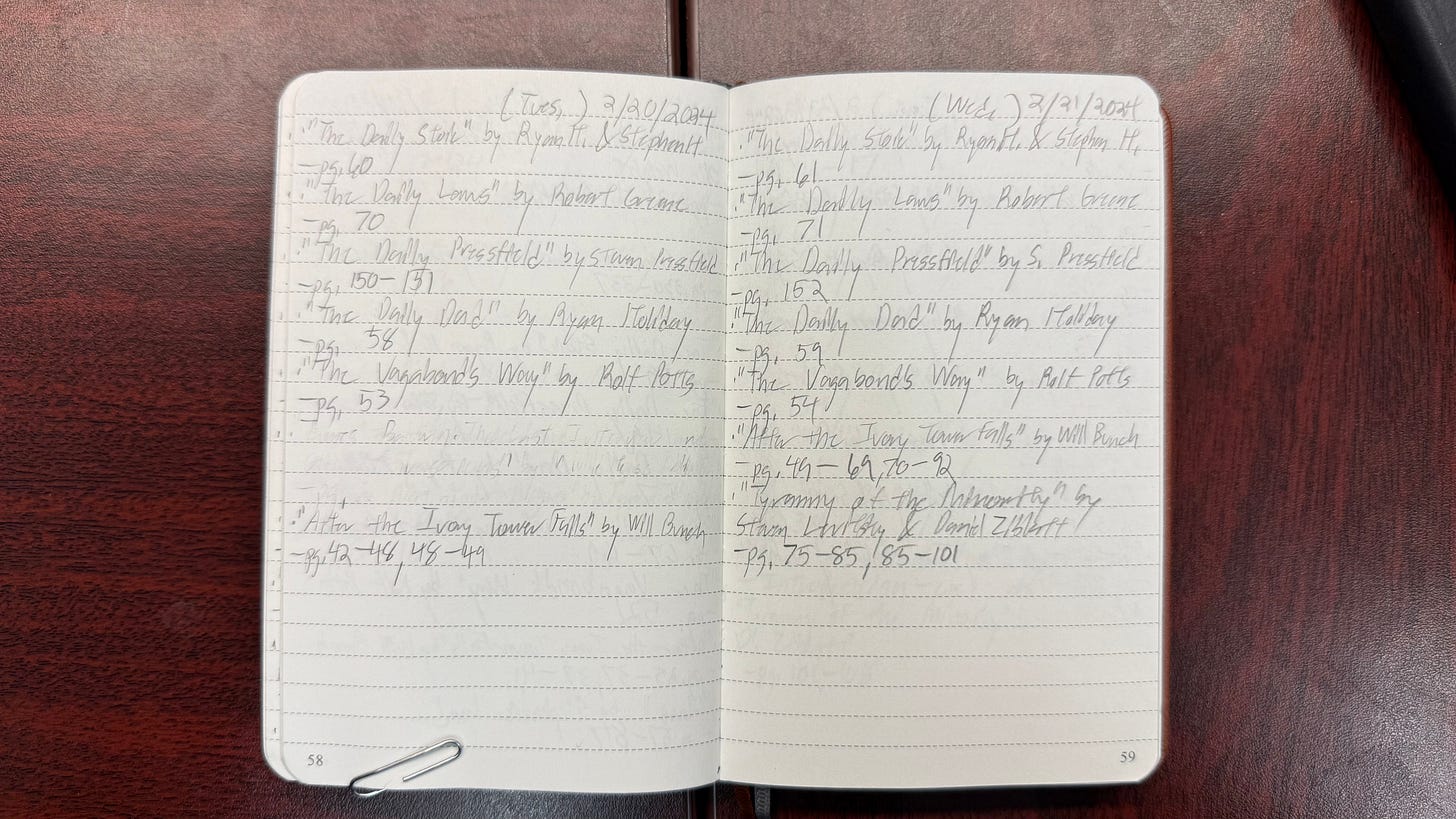 (Tues,) 2/20/2024
. "The Daily Stoic" by Ryan H, & Stephen H
— pg, 60
. "The Daily Laws" by Robert Greene
— pg, 70
. "The Daily Pressfield" by Steven Pressfield
— pg, 150-151
. "The Daily Dad" by Ryan Holiday
— pg, 58
. "The Vagabond's Way" by Rolf Potts
— pg, 53
— pg,
. "After the Ivory Tower Falls" by Will Bunch
— pg, 42-48, 48-49
58
(Wed,) 2/21/2024
. "The Daily Stoic" by Ryan H, & Stephen H,
— pg, 61
. "The Daily Laws" by Robert Greene
— pg, 71
. "The Daily Pressfield" by S, Pressfield
— pg, 152
. "The Daily Dad" by Ryan Holiday
— pg, 59
. "The Vagabond's Way" by Rolf Potts
— pg, 54
. "After the Ivory Tower Falls" by Will Bunch
— pg, 49-69, 70-92
. "Tyranny of the Minority" by
Steven Levitsky & Daniel Ziblatt
— pg, 75-85, 85-101
59